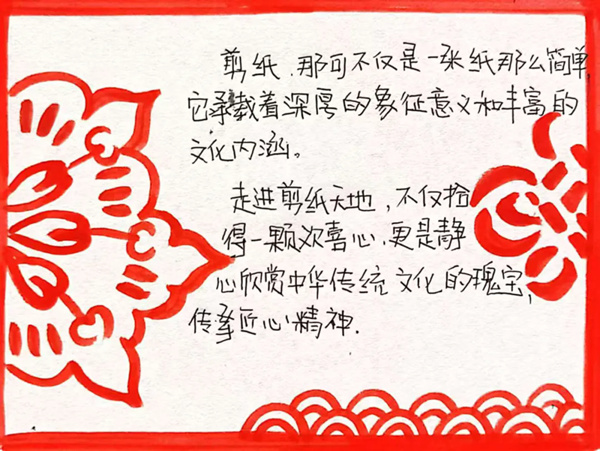 剪纸，那可不仅是一张纸那么简单，
它承载着深厚的象征意义和丰富的
文化内涵。
走进剪纸天地，不仅拾
得一颗欢喜心，更是静
心欣赏中华传统文化的瑰宝，
传承匠心精神.